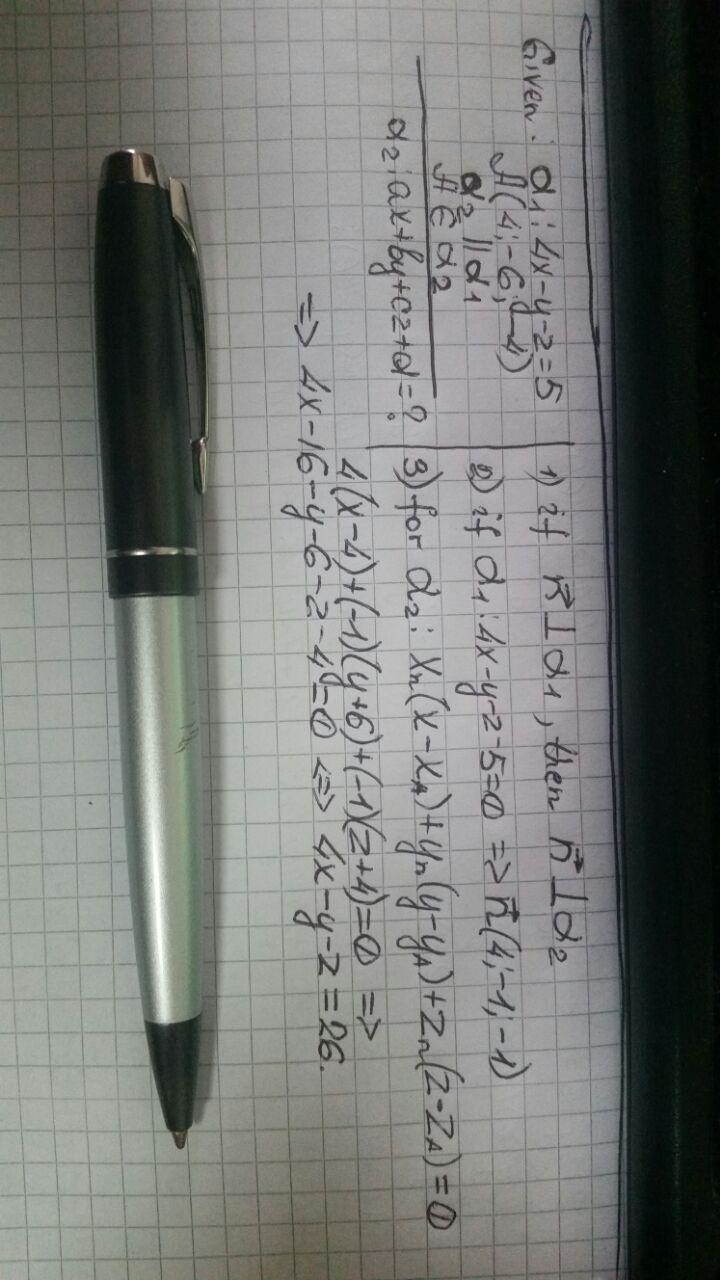 Given: α₁: 4x-y-z=5
A(4;-6;-4)
α₂ || α₁
A ∈ α₂
α₂: ax+by+cz+d=?
1) if n⃗ ⊥ α₁, then n⃗ ⊥ α₂
2) if α₁: 4x-y-z-5=0 => n⃗(4;-1;-1)
3) for α₂: xₙ(x-x_A)+yₙ(y-y_A)+zₙ(z-z_A)=0
4(x-4)+(-1)(y+6)+(-1)(z+4)=0 =>
=> 4x-16-y-6-z-4=0 <=> 4x-y-z=26.